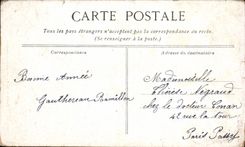 CARTE POSTALE
Tous les pays étrangers n'acceptent pas la correspondance au recto.
(Se renseigner à la poste.)
Correspondance
Adresse du destinataire
Bonne Année
Mademoiselle
Thérèse Negraud
chez le docteur Conan
42 rue la Tour
Paris Passy